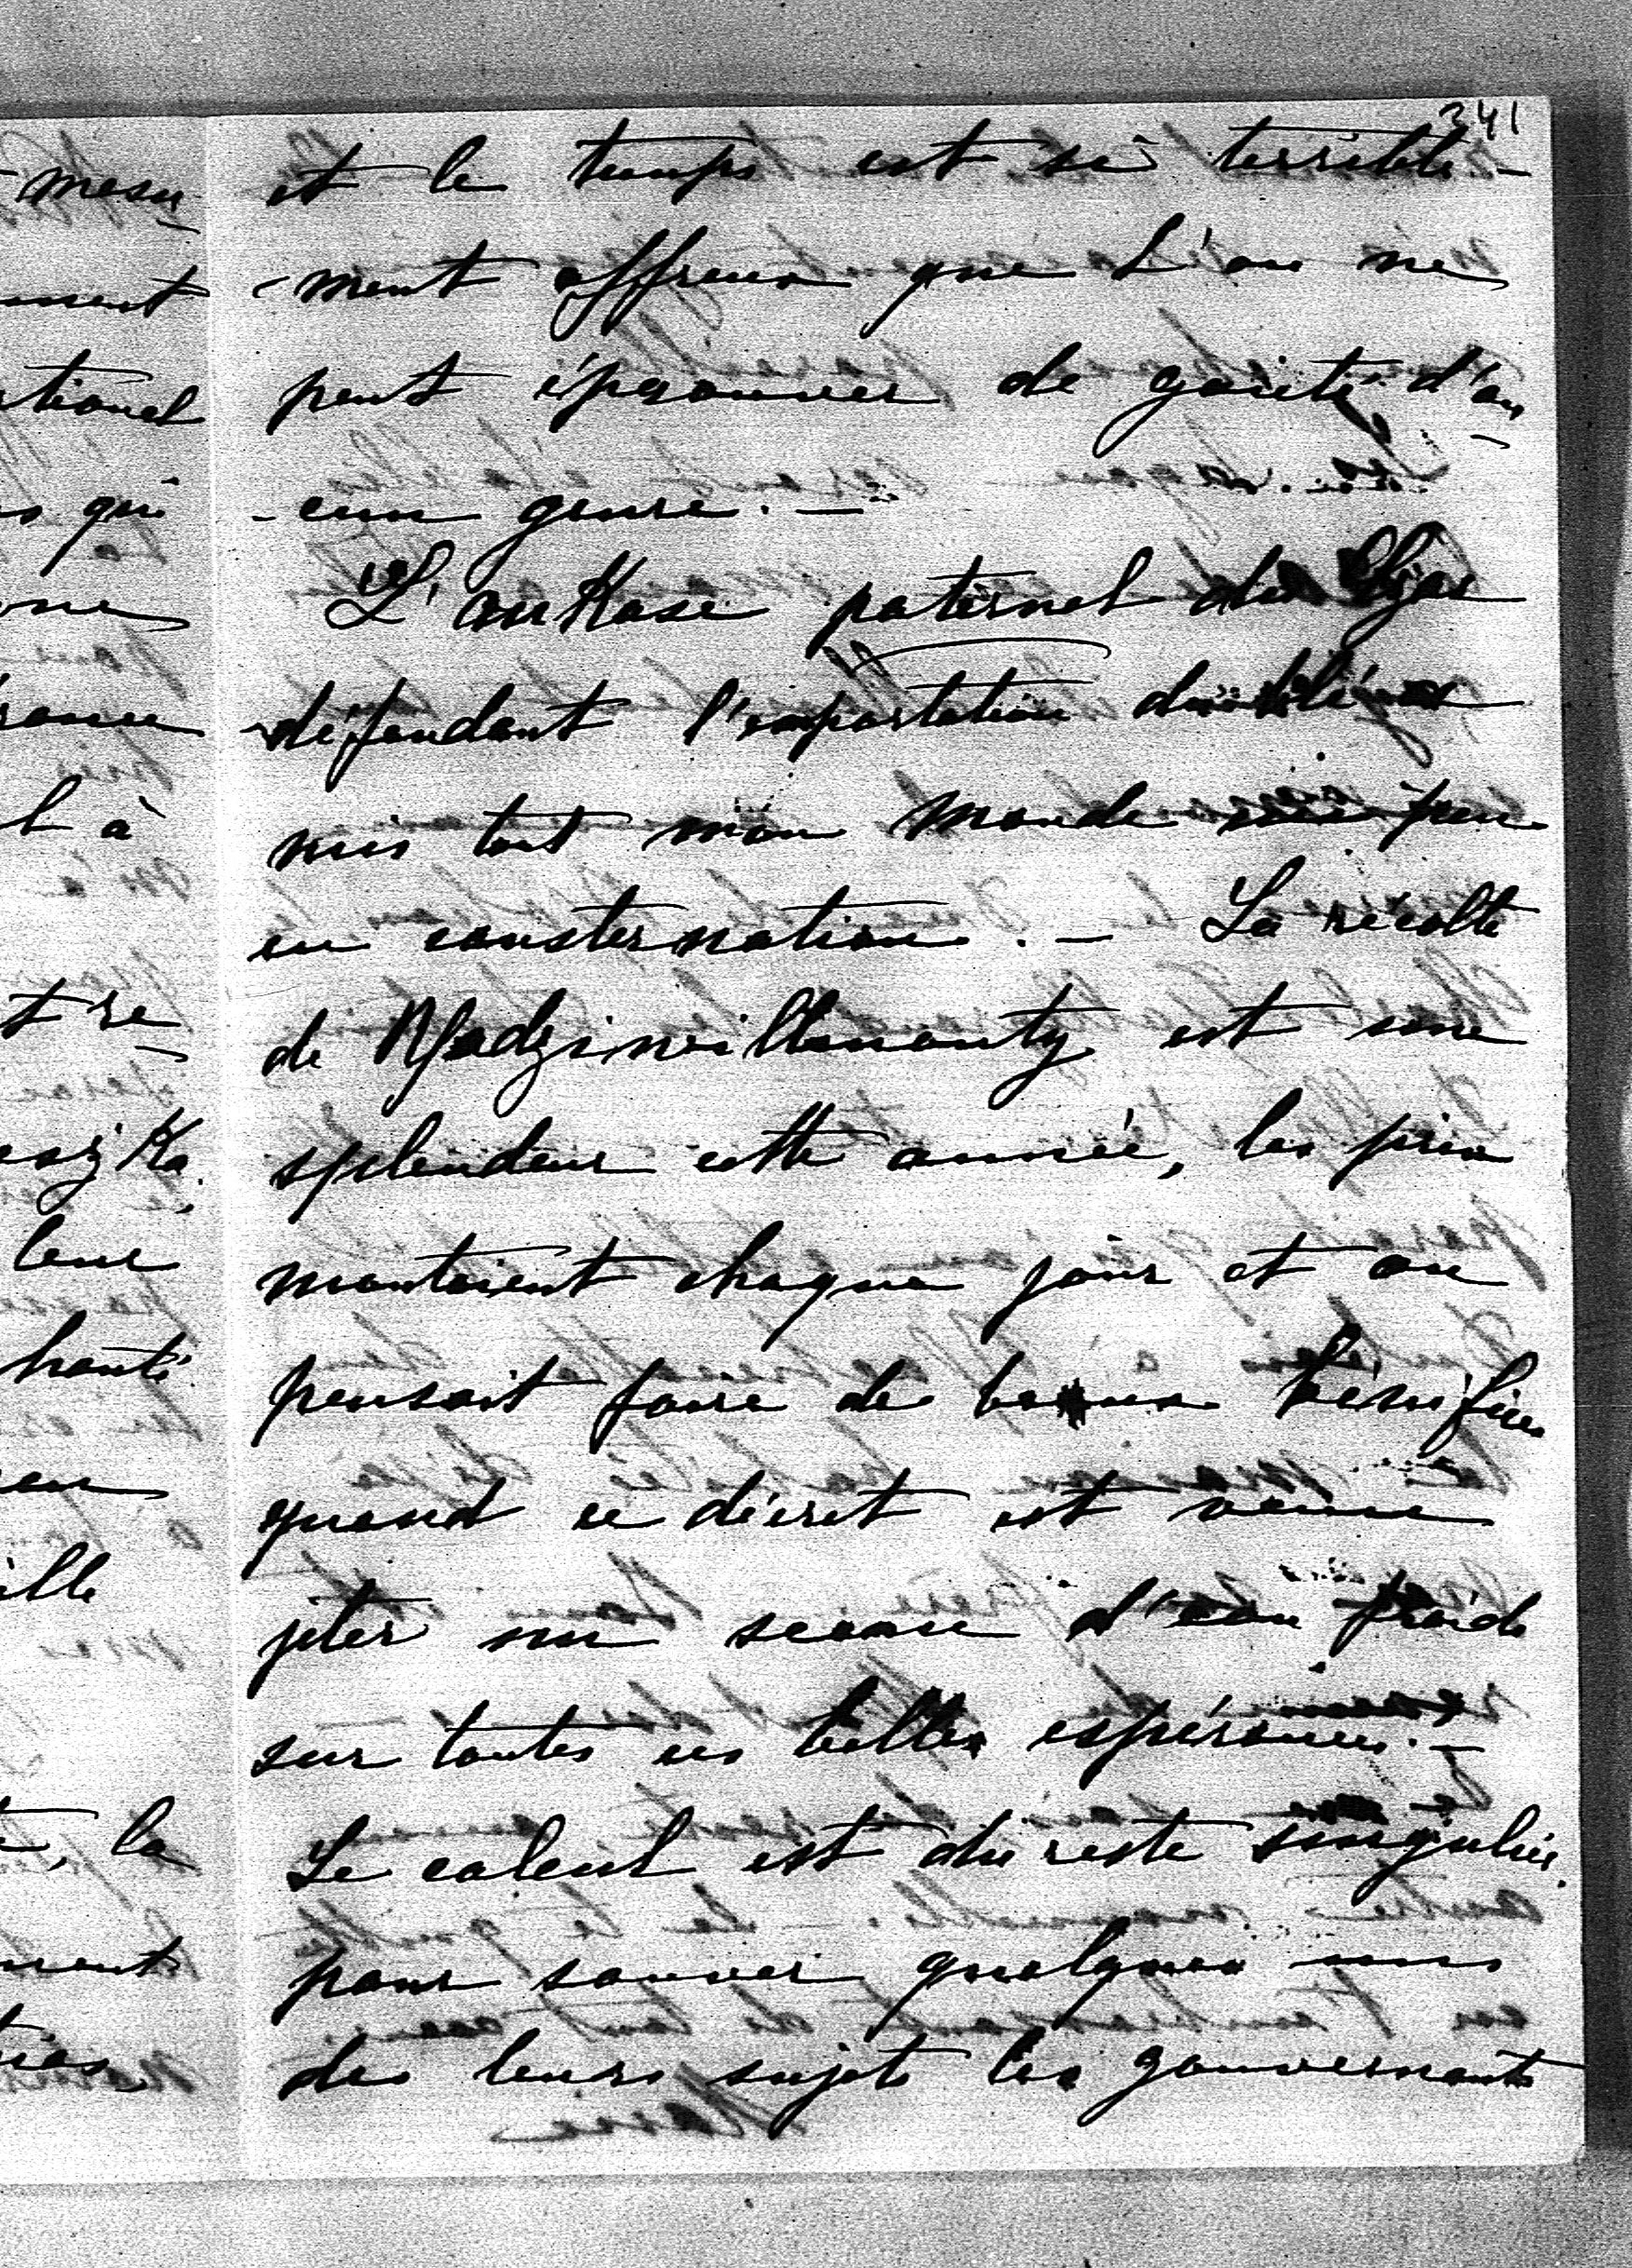 341
et le temps est si terrible-
-ment affreux que l'on ne
peut éprouver de gaieté d'au-
-cun genre. —
L'oukase paternel du Czar
défendant l'exportation du blé a
mis tout mon monde peu
en consternation. — La récolte
de est une
splendeur cette année, les prix
montaient chaque jour et on
pensait faire de beaux bénéfices
quand ce décret est venu
jeter un sceau d'eau froide
sur toutes ces belles espérances. —
Le calcul est du reste singulier.
pour sauver quelques uns
des leurs sujets les gouvernants
mesu-
ment
ationel
qui
l à
t re-
leur
ille
la
ment